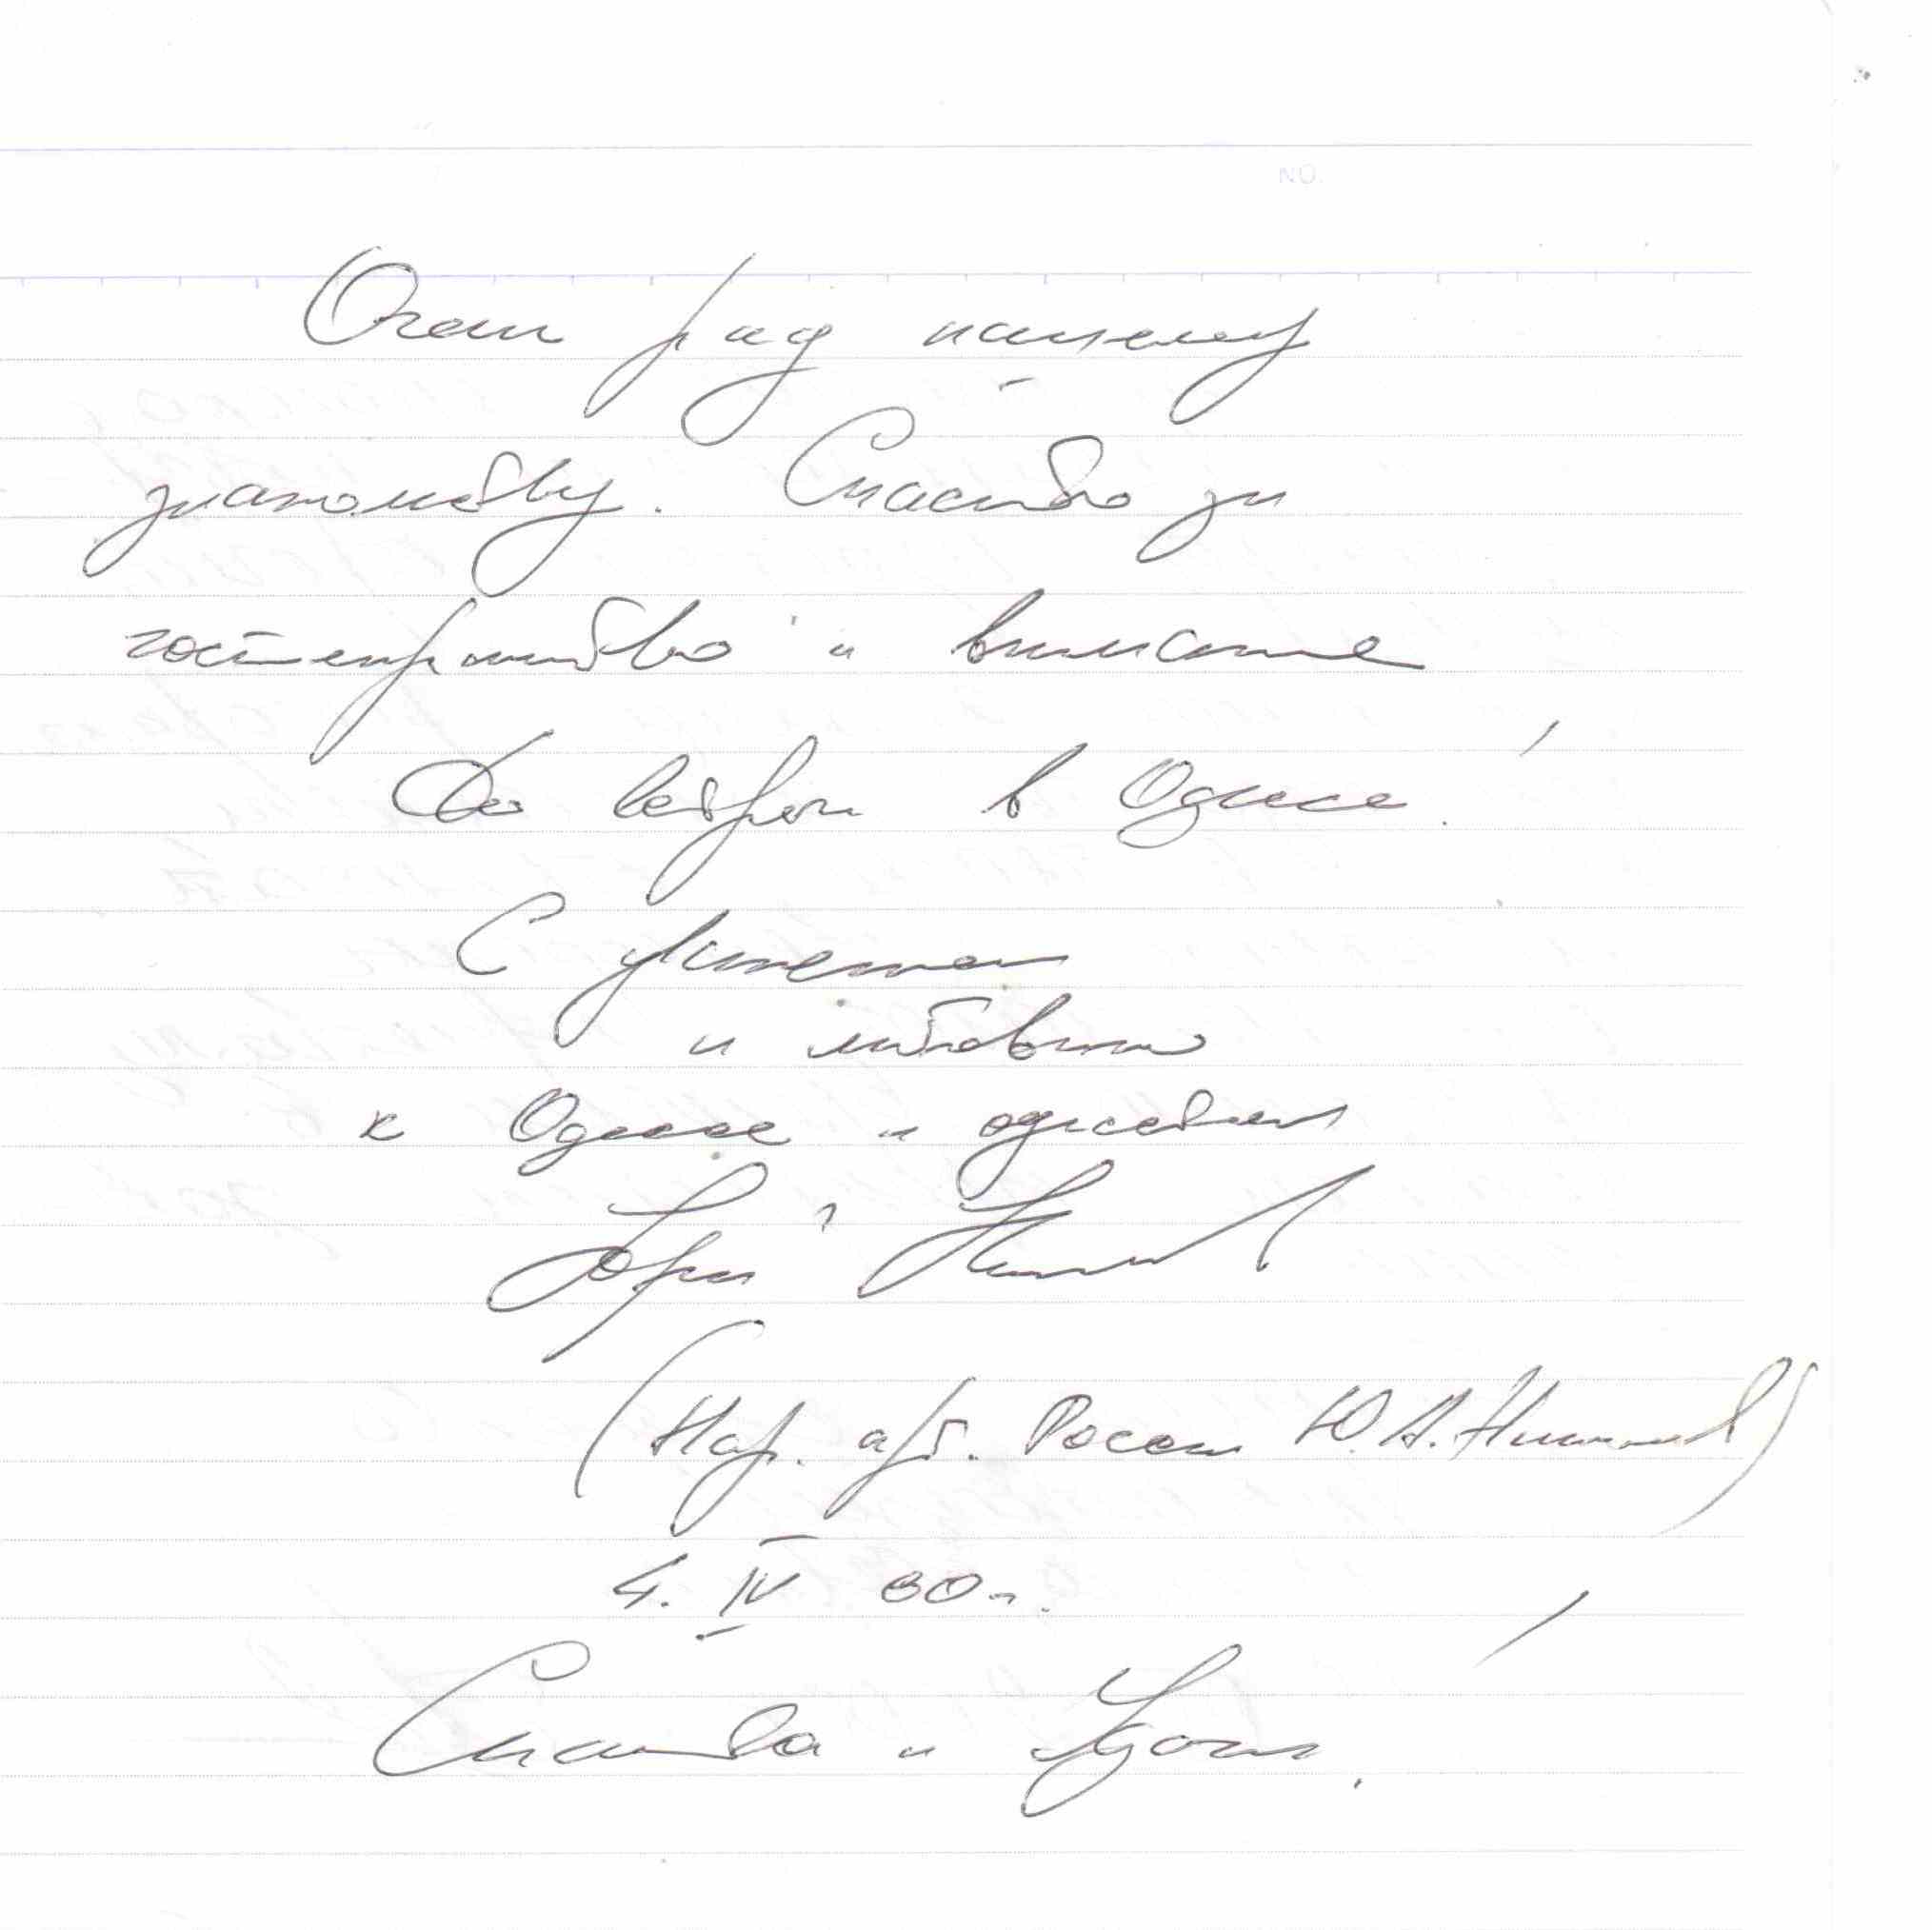 NO.
Очень рад нашему
знакомству. Спасибо за
гостеприимство и внимание
До встречи в Одессе!
С уважением
и любовью
к Одессе и одесситам
Юрий Никулин
(Нар. арт. России Ю. В. Никулин)
4. IV 80 г.
Спасибо и